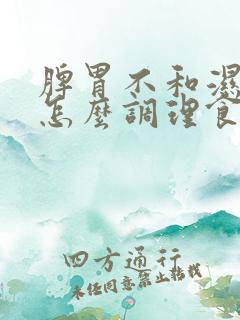 脾胃不和濕
怎麼調理食
四方通行
未經同意禁止轉載